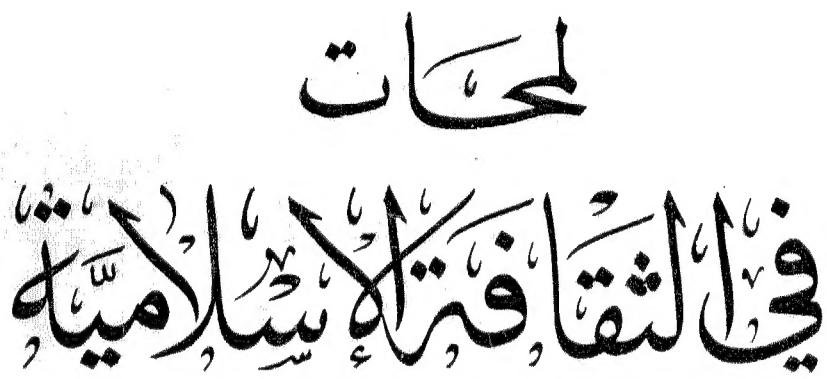 لمحات
في الثقافة الإسلاميّة